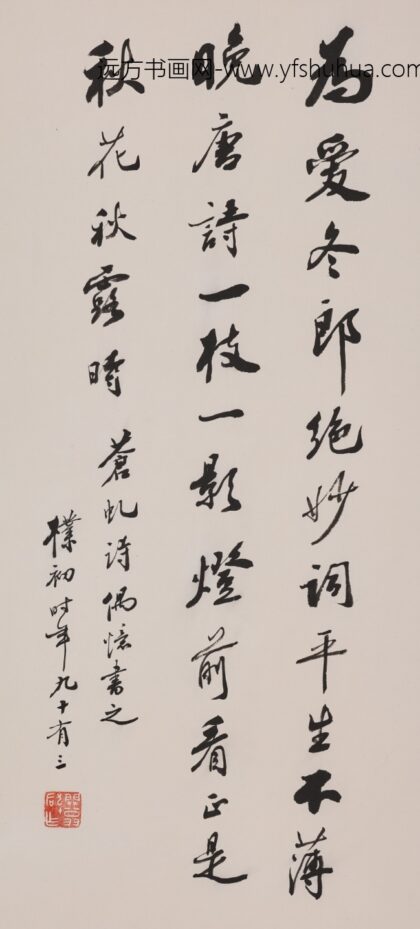 远方书画网-www.yfshuhua.com
为愛冬郎絶妙詞平生不薄
晚唐詩一枝一影燈前看正是
秋花秋露時
蒼虬詩偶憶書之
樸初时年九十有三